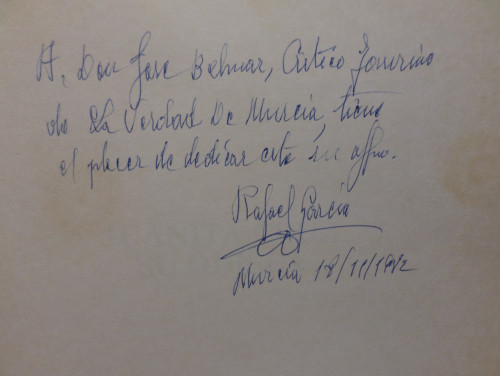 A, Don Jose Belmar, Critico Taurino
de La Verdad De Murcia, tiene
el placer de dedicar este su affmo.
Rafael García
Murcia 18/11/1982